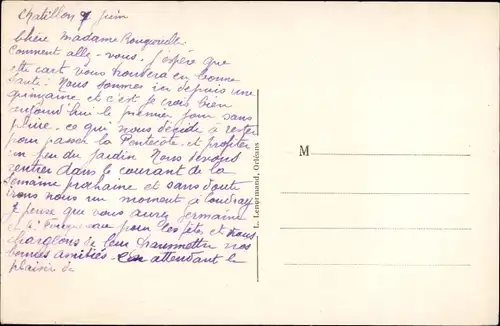 Chatillon 7 Juin
Chère Madame
Comment allez-vous. J'éspère que
cette cart vous trouvera en bonne
santé. Nous sommes ici depuis une
quinzaine et c'est je crois bien
aujourd'hui le premier jour sans
pluie. ce qui nous décide à rester
pour passer la Pentecôte. et profiter
un peu du jardin Nous devons
rentrer dans le courant de la
semaine prochaine et sans doute
irons nous un moment à Coudray
Je pense que vous aurez Germaine
et pour les fêtes, et nous
chargeons de leur transmettre nos
bonnes amitiés. En attendant le
plaisir de
L. Lenormand, Orléans
M